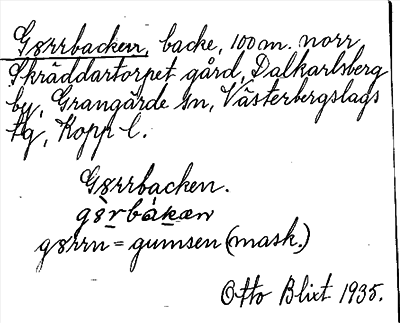 Gørrbacken, backe, 100 m. norr
Skräddartorpet gård, Dalkarlsberg
by, Grangärde sn, Västerbergslags
tg, Kopp l.
Gørrbacken.
gə̀rbákæn
gørrn = gumsen (mask.)
Otto Blixt 1935.